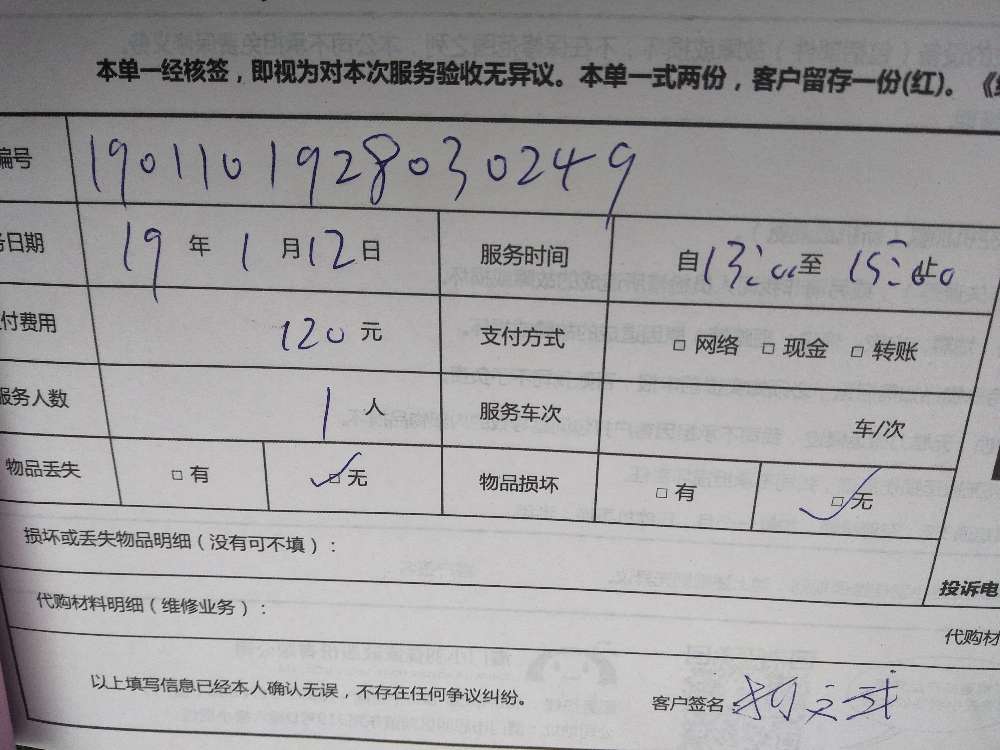 本单一经核签，即视为对本次服务验收无异议。本单一式两份，客户留存一份(红)。
编号 1901101928030249
务日期 19 年 1 月 12 日 服务时间 自 13:00 至 15:00 止
付费用 120 元 支付方式 □ 网络 □ 现金 □ 转账
服务人数 1 人 服务车次 车/次
物品丢失 □ 有 ☑ 无 物品损坏 □ 有 ☑ 无
损坏或丢失物品明细（没有可不填）：
投诉电
代购材料明细（维修业务）：
代购材
以上填写信息已经本人确认无误，不存在任何争议纠纷。 客户签名：